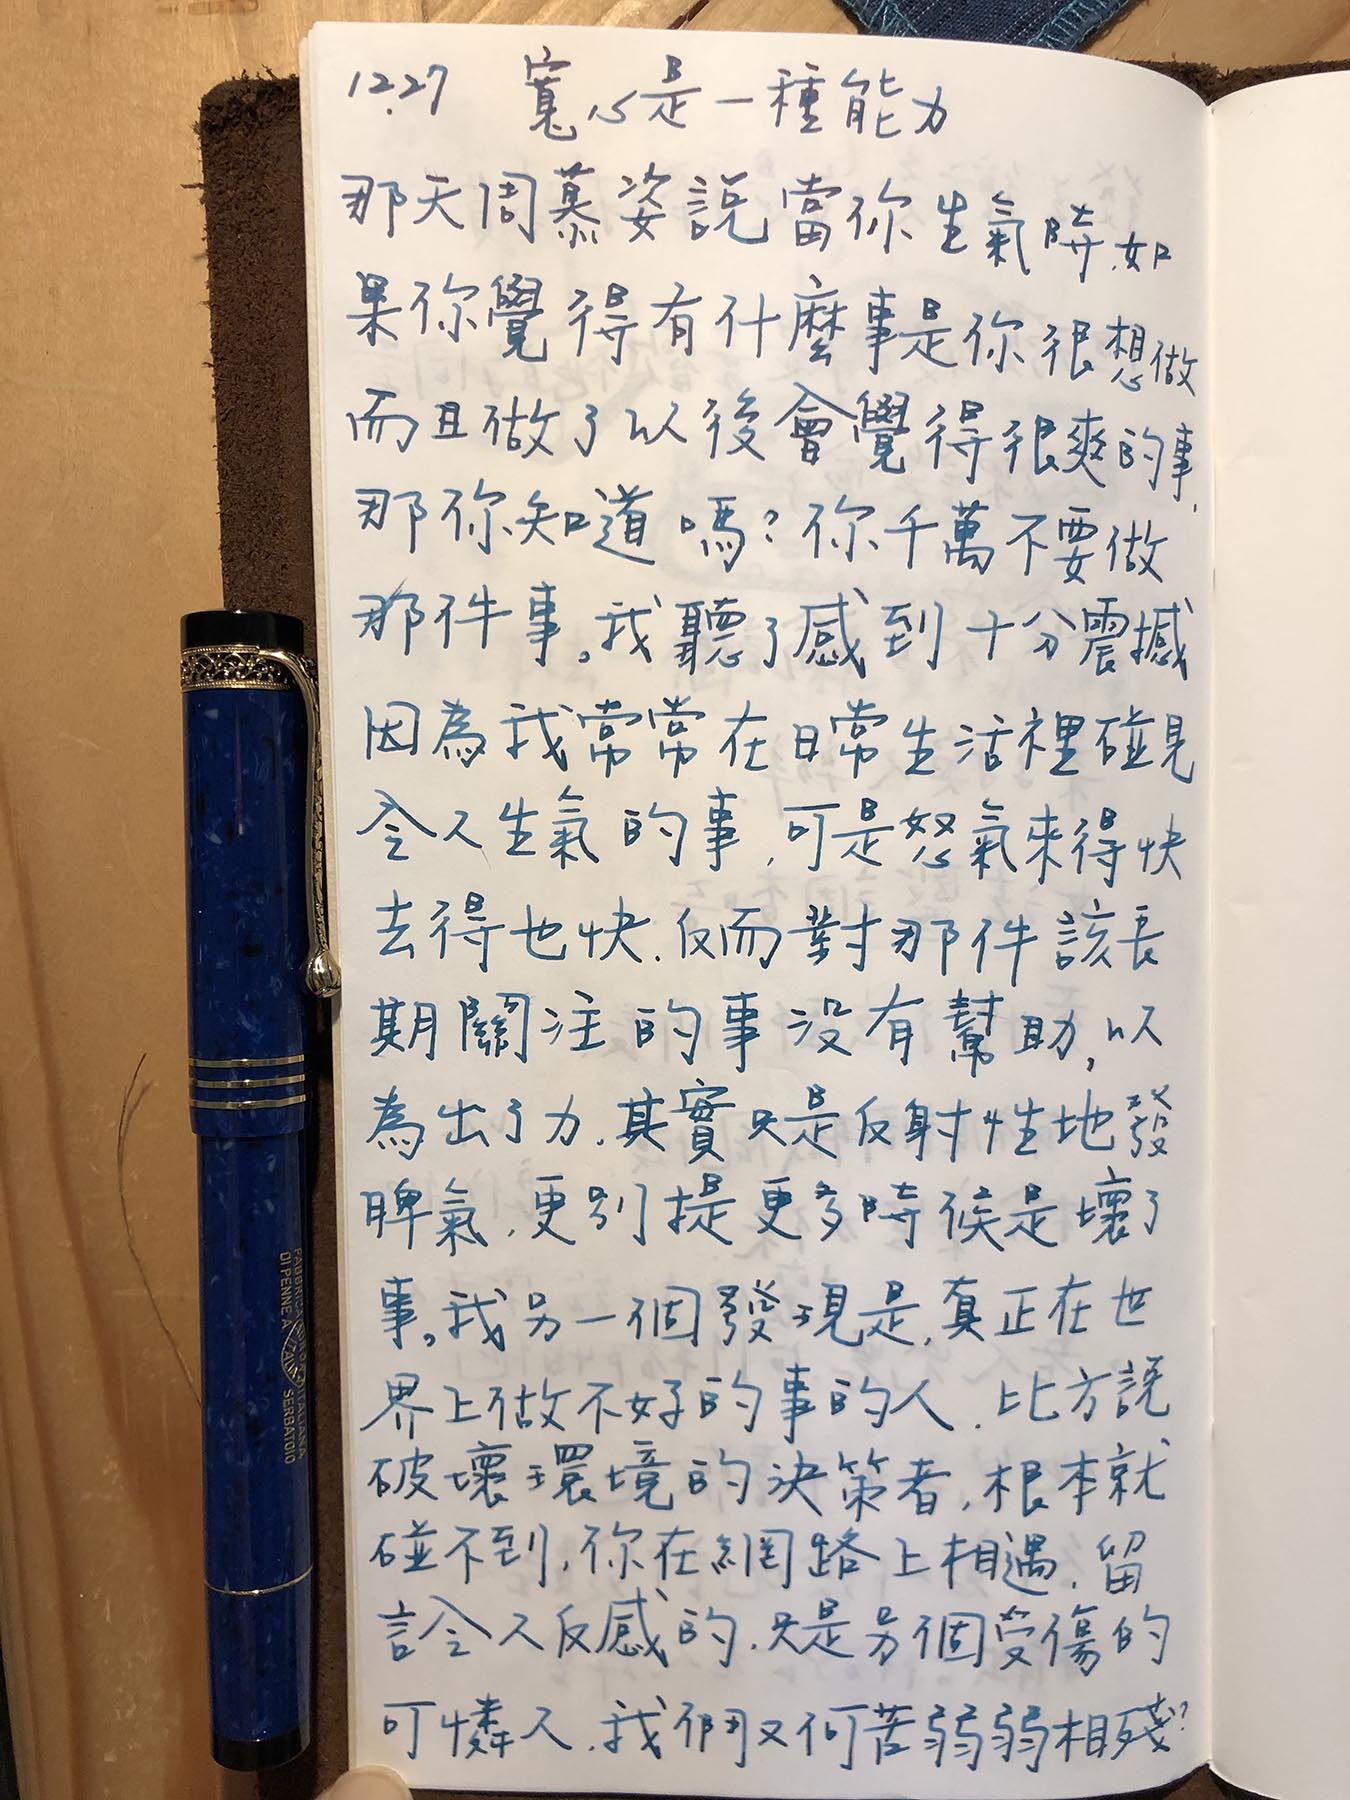 12.27 寬心是一種能力
那天周慕姿說當你生氣時,如
果你覺得有什麼事是你很想做
而且做了以後會覺得很爽的事,
那你知道嗎?你千萬不要做
那件事。我聽了感到十分震撼
因為我常常在日常生活裡碰見
令人生氣的事,可是怒氣來得快
去得也快,反而對那件該長
期關注的事沒有幫助,以
為出了力,其實只是反射性地發
脾氣,更別提更多時候是壞了
事。我另一個發現是,真正在世
界上做不好的事的人,比方說
破壞環境的決策者,根本就
碰不到,你在網路上相遇,留
言令人反感的,只是另個受傷的
可憐人,我們又何苦弱弱相殘?
FABBRICA ITALIANA
DI PENNE A SERBATOIO